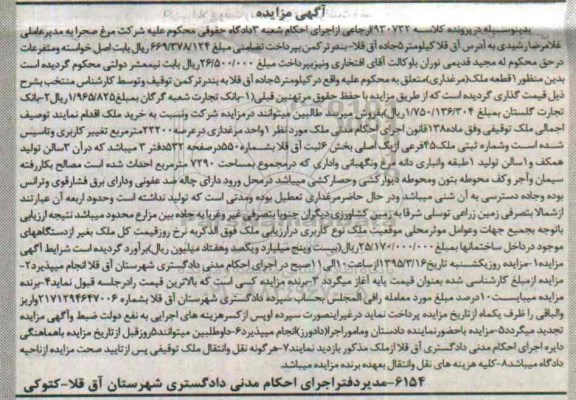 آگهی مزایده
بدینوسیله در پرونده کلاسه ۹۳۰۷۳۲ ارجاعی از اجرای احکام شعبه ۳ دادگاه حقوقی محکوم علیه شرکت مرغ صحرا به مدیرعاملی
غلامرضا رشیدی به آدرس آق قلا کیلومتر ۵ جاده آق قلا- بندر ترکمن بپرداخت تضامنی مبلغ ۶۶۹/۳۷۸/۱۲۴ ریال بابت اصل خواسته ومتفرعات
درحق محکوم له مجید قدیمی نوران باوکالت آقای افتخاری ونیز بپرداخت مبلغ ۲۶/۵۰۰/۰۰۰ ریال بابت نیمعشر دولتی محکوم گردیده است
بدین منظور ۱ قطعه ملک (مرغداری) متعلق به محکوم علیه واقع در کیلومتر ۵ جاده آق قلا به بندر ترکمن توقیف وتوسط کارشناس منتخب بشرح
ذیل قیمت گذاری گردیده است که از طریق مزایده با حفظ حقوق مرتهنین قبلی (۱- بانک تجارت شعبه گرگان بمبلغ ۱/۹۶۵/۸۲۵ ریال ۲- بانک
تجارت گلستان بمبلغ ۱/۷۵۰/۱۳۶/۳۰۴ ریال) بفروش میرسد طالبین میتوانند در مزایده شرکت ونسبت به خرید ملک اقدام نمایند توصیف
اجمالی ملک توقیفی وفق ماده ۱۳۸ قانون اجرای احکام مدنی ملک مورد نظر ۱ واحد مرغداری در عرصه ۲۲۲۰۰ مترمربع تغییر کاربری وتاسیس
شده است وشماره ثبتی ملک ۴۵ فرعی از یک اصلی بخش ۶ ثبت آق قلا بشماره ۵۵۰ درصفحه ۵۳۲ دفتر ۳ میباشد که در آن ۳ سالن تولید
همکف و ۱ سالن تولید ۱ طبقه وانباری دانه مرغ ونگهبانی واداری که در مجموع بمساحت ۷۲۹۰ مترمربع احداث شده است مصالح بکاررفته
سیمان وآجر وکف محوطه بتون ومحوطه دیوار کشی وحصار کشی میباشد در محل ورود دارای چاله ضد عفونی ودارای برق فشارقوی وترانس
بوده وجاده دسترسی به آن شنی میباشد ودر حال حاضر مرغداری تعطیل بوده ومدتی است که تولید نداشته است وحدود اربعه آن عبارتند
ازشمالا بتصرفی زمین زراعی توسلی شرقا به زمین کشاورزی دیگران جنوبا بتصرفی غیر وغربا به جاده بین مزارع محدود میباشد نتیجه ارزیابی
باتوجه بجمیع جهات وعوامل موثرمحلی موقعیت ملک نوع کاربری درارزیابی ملک فوق الذکربه نرخ روز قیمت کل ملک بغیر از دستگاههای
موجود در داخل ساختمانها بمبلغ ۲۵/۱۷۰/۰۰۰/۰۰۰ ریال (بیست وپنج میلیارد ویکصد وهفتاد میلیون ریال) برآورد گردیده است شرایط آگهی
مزایده ۱- مزایده روز یکشنبه تاریخ ۱۳۹۵/۳/۱۶ از ساعت ۱۰ الی ۱۱ صبح در اجرای احکام مدنی دادگستری شهرستان آق قلا انجام میپذیرد ۲-
مزایده ازمبلغ کارشناسی شده بعنوان قیمت پایه آغاز میگردد ۳- برنده مزایده کسی است که بالاترین قیمت رادرجلسه قبول نماید ۴- برنده
مزایده میبایست ۱۰ درصد مبلغ مورد معامله رافی المجلس بحساب سپرده دادگستری شهرستان آق قلا بشماره ۲۱۷۱۲۹۴۶۴۷۰۰۶ واریز
والباقی را ظرف یکماه از تاریخ مزایده پرداخت نماید در غیراینصورت سپرده اوپس از کسر هزینه های اجرایی به نفع دولت ضبط وآگهی مزایده
تجدید میگردد ۵- مزایده باحضور نماینده دادستان ومامور اجرا (دادورز) انجام میپذیرد ۶- داوطلبین میتوانند ۵ روز قبل از تاریخ مزایده باهماهنگی
دایره اجرای احکام مدنی دادگستری آق قلا از ملک مذکور بازدید نمایند ۷- هر گونه نقل وانتقال ملک توقیفی پس از تایید صحت مزایده از ناحیه
دادگاه میباشد ۸- کلیه هزینه های نقل وانتقال بعهده برنده مزایده میباشد.
۶۱۵۴- مدیر دفتر اجرای احکام مدنی دادگستری شهرستان آق قلا- کتوکی